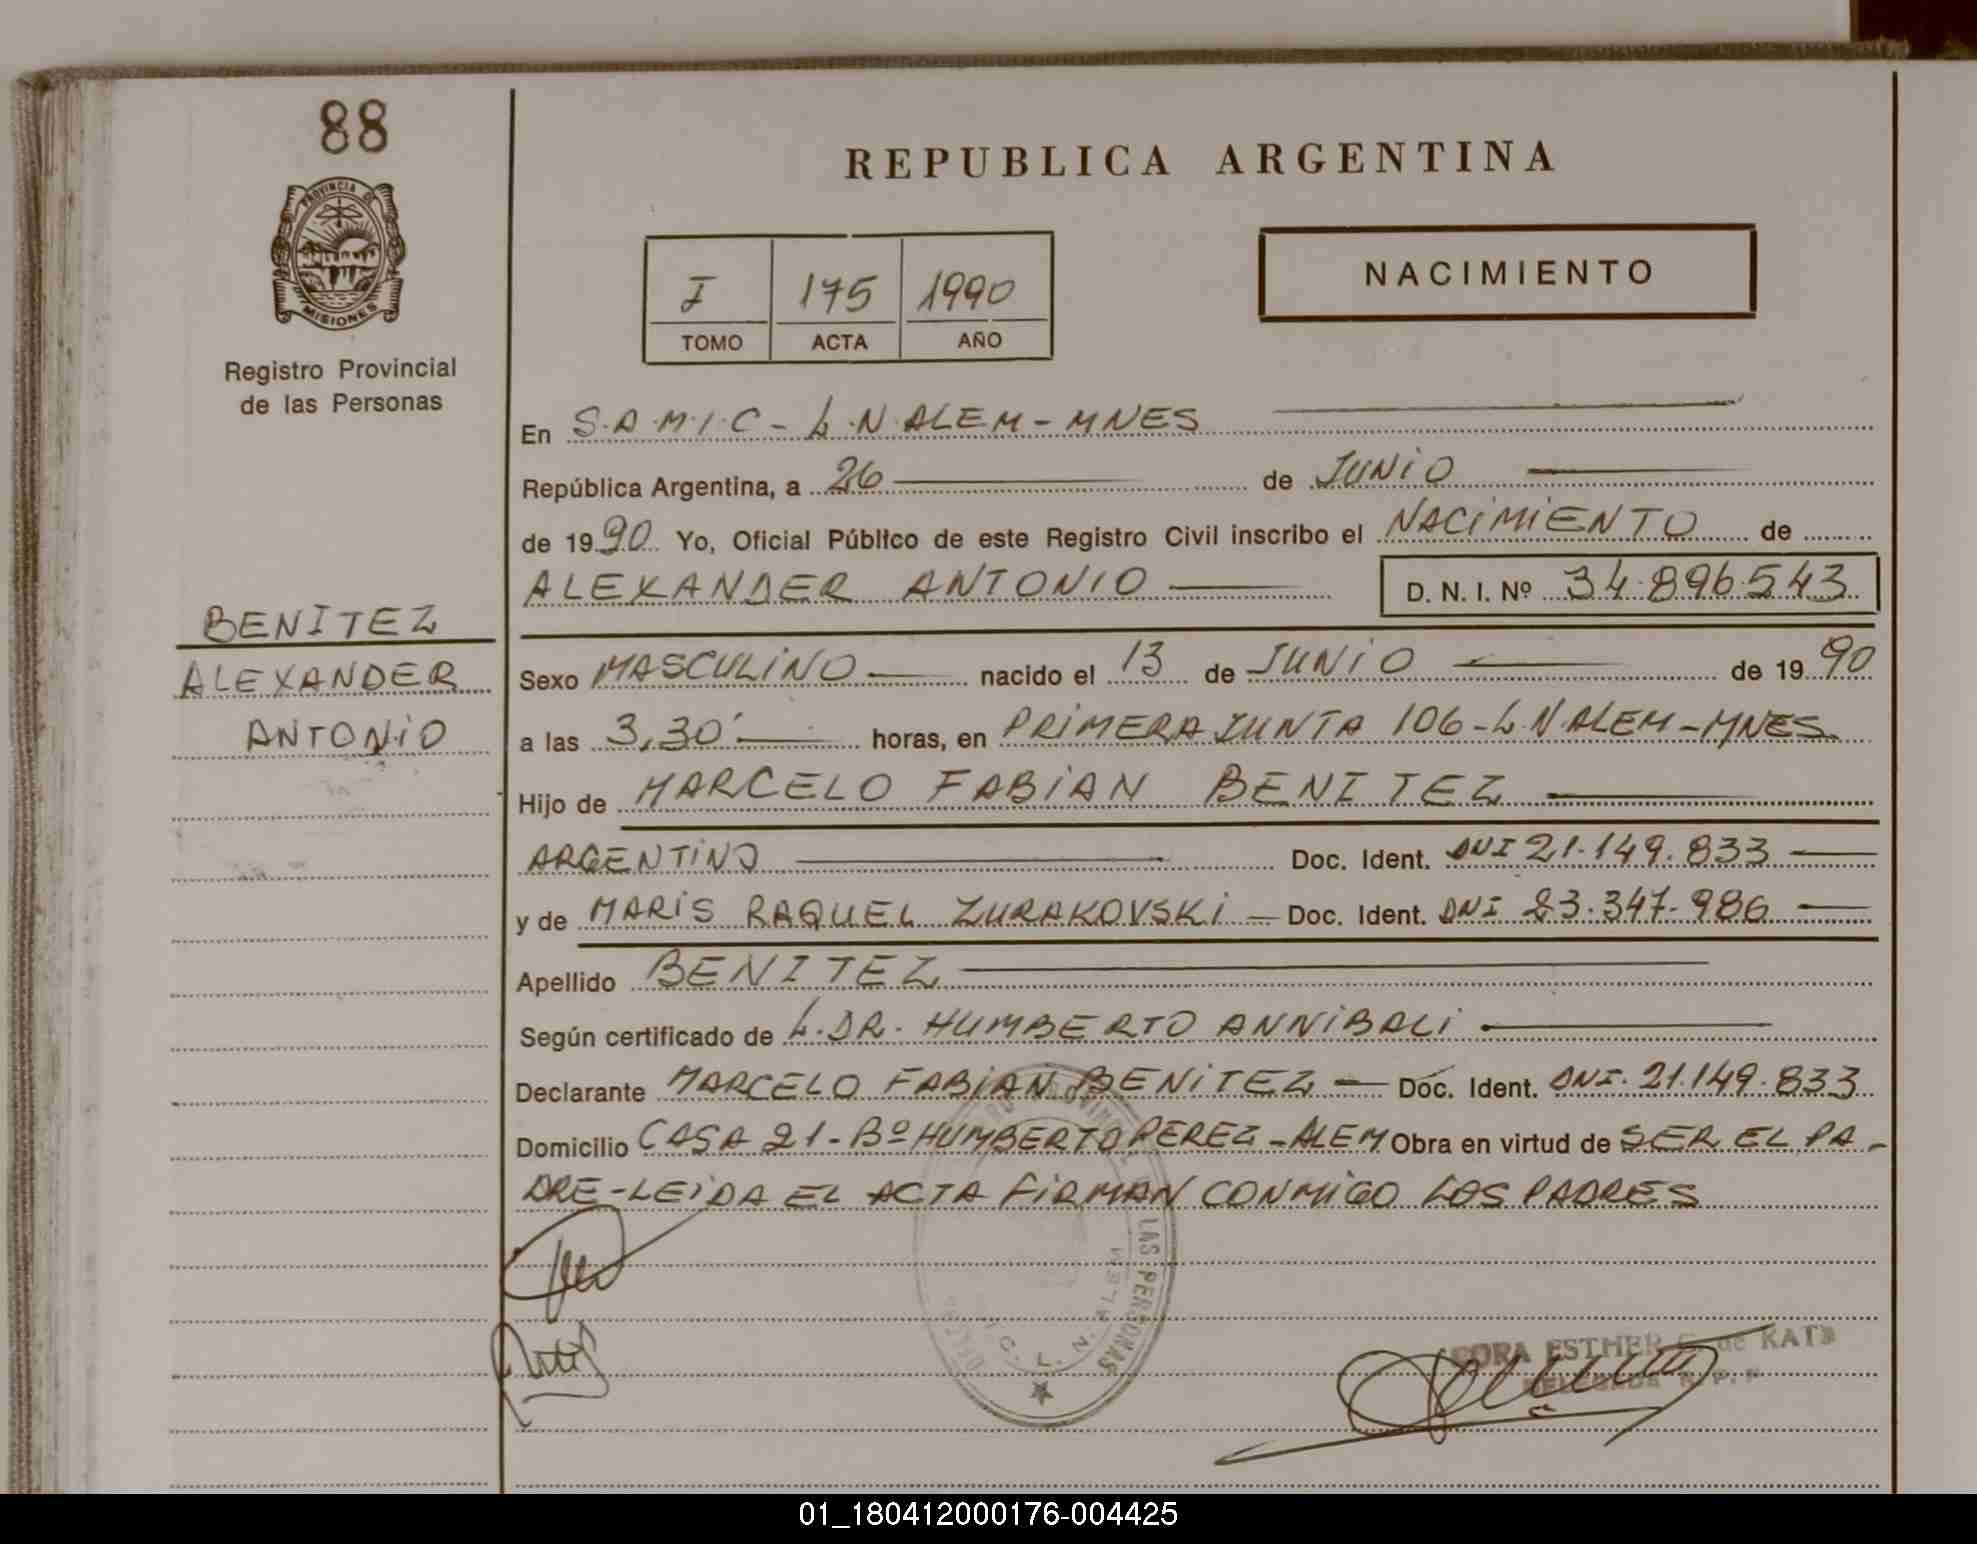 88
PROVINCIA DE
MISIONES
Registro Provincial
de las Personas
BENITEZ
ALEXANDER
ANTONIO
REPUBLICA ARGENTINA
I 175 1990
TOMO ACTA AÑO
NACIMIENTO
En S.A.M.I.C - L.N.ALEM - MNES
República Argentina, a 26 de JUNIO
de 1990 Yo, Oficial Público de este Registro Civil inscribo el NACIMIENTO de
ALEXANDER ANTONIO D. N. I. Nº 34.896.543
Sexo MASCULINO nacido el 13 de JUNIO de 1990
a las 3,30' horas, en PRIMERA JUNTA 106 - L.N.ALEM - MNES.
Hijo de MARCELO FABIAN BENITEZ
ARGENTINO Doc. Ident. DNI 21.149.833
y de MARIS RAQUEL ZURAKOVSKI Doc. Ident. DNI 23.347.986
Apellido BENITEZ
Según certificado de L. DR. HUMBERTO ANNIBALI
Declarante MARCELO FABIAN BENITEZ Doc. Ident. DNI. 21.149.833
Domicilio CASA 21 - Bº HUMBERTO PEREZ - ALEM Obra en virtud de SER EL PA-
DRE - LEIDA EL ACTA FIRMAN CONMIGO LOS PADRES
LAS PERSONAS
L. N. ALEM
ESTHER de KATZ
01_180412000176-004425